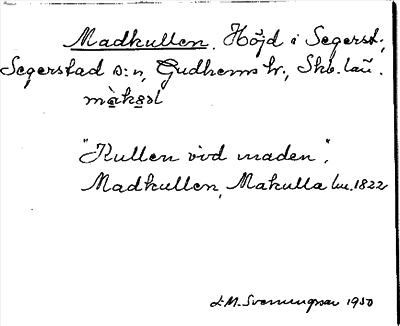 Madkullen. Höjd i Segerst.,
Segerstad s:n, Gudhems hr., Skb. län.
"Kullen vid maden".
Madkullen, Makulla lm. 1822
L.M. Svenungsson 1950